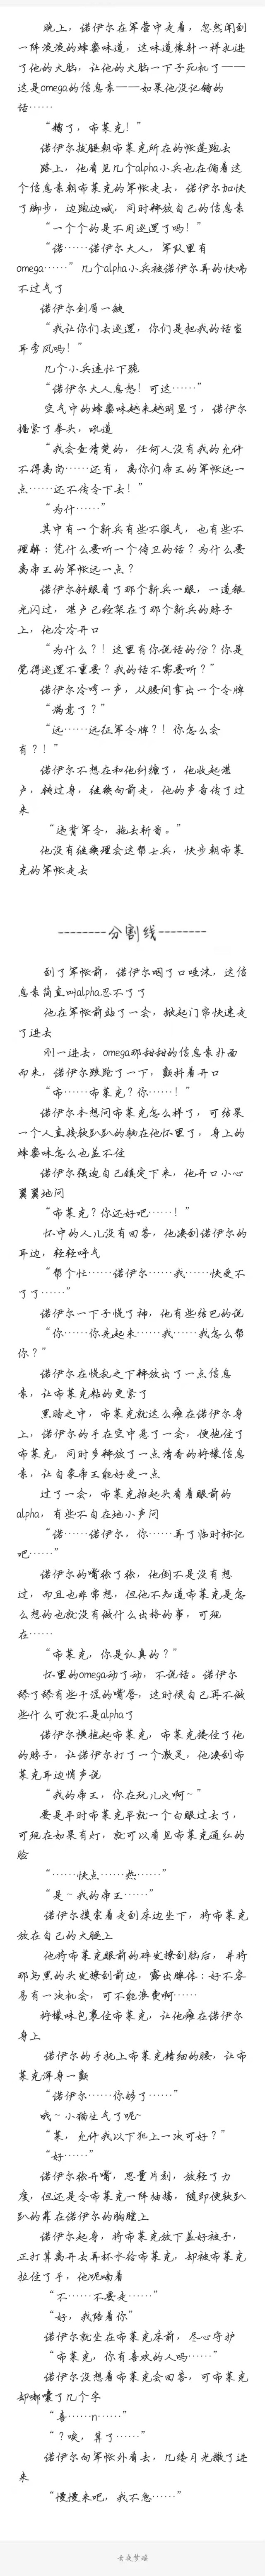 晚上，诺伊尔在军营中走着，忽然闻到
一阵淡淡的蜂蜜味道，这味道像针一样扎进
了他的大脑，让他的大脑一下子死机了——
这是omega的信息素——如果他没记错的
话……
“糟了，布莱克！”
诺伊尔拔腿朝布莱克所在的帐篷跑去
路上，他看见几个alpha小兵也在循着这
个信息素朝布莱克的军帐走去，诺伊尔加快
了脚步，边跑边喊，同时释放自己的信息素
“一个个的是不用巡逻了吗！”
“诺……诺伊尔大人，军队里有
omega……”几个alpha小兵被诺伊尔弄的快喘
不过气了
诺伊尔剑眉一皱
“我让你们去巡逻，你们是把我的话当
耳旁风吗！”
几个小兵连忙下跪
“诺伊尔大人息怒！可这……”
空气中的蜂蜜味越来越明显了，诺伊尔
握紧了拳头，吼道
“我会查清楚的，任何人没有我的允许
不得离岗……还有，离你们帝王的军帐远一
点……还不传令下去！”
“为什……”
其中有一个新兵有些不服气，也有些不
理解：凭什么要听一个侍卫的话？为什么要
离帝王的军帐远一点？
诺伊尔斜眼看了那个新兵一眼，一道银
光闪过，湛卢已经架在了那个新兵的脖子
上，他冷冷开口
“为什么？！这里有你说话的份？你是
觉得巡逻不重要？我的话不需要听？”
诺伊尔冷哼一声，从腰间拿出一个令牌
“满意了？”
“远……远征军令牌？！你怎么会
有？！”
诺伊尔不想在和他纠缠了，他收起湛
卢，转过身，继续向前走，他的声音传了过
来
“违背军令，拖去斩首。”
他没有继续理会这帮士兵，快步朝布莱
克的军帐走去
--------分割线--------
到了军帐前，诺伊尔咽了口唾沫，这信
息素简直叫alpha忍不了了
他在军帐前站了一会，掀起门帘快速走
了进去
刚一进去，omega那甜甜的信息素扑面
而来，诺伊尔踉跄了一下，颤抖着开口
“布……布莱克？你……！”
诺伊尔本想问布莱克怎么样了，可结果
一个人直接软趴趴的躺在他怀里了，身上的
蜂蜜味怎么也盖不住
诺伊尔强迫自己镇定下来，他开口小心
翼翼地问
“布莱克？你还好吧……！”
怀中的人儿没有回答，他凑到诺伊尔的
耳边，轻轻呼气
“帮个忙……诺伊尔……我……快受不
了了……”
诺伊尔一下子慌了神，他有些结巴的说
“你……你先起来……我……我怎么帮
你？”
诺伊尔在慌乱之下释放出了一点信息
素，让布莱克粘的更紧了
黑暗之中，布莱克就这么瘫在诺伊尔身
上，诺伊尔的手在空中悬了一会，便抱住了
布莱克，同时多释放了一点清香的柠檬信息
素，让自家帝王能好受一点
过了一会，布莱克抬起头看着眼前的
alpha，有些不自在地小声问
“诺……诺伊尔，你……弄了临时标记
吧……”
诺伊尔的嘴张了张，他倒不是没有想
过，而且也非常想，但他不知道布莱克是怎
么想的也就没有做什么出格的事，可现
在……
“布莱克，你是认真的？”
怀里的omega动了动，不说话。诺伊尔
舔了舔有些干涩的嘴唇，这时候自己再不做
些什么可就不是alpha了
诺伊尔横抱起布莱克，布莱克搂住了他
的脖子，让诺伊尔打了一个激灵，他凑到布
莱克耳边悄声说
“我的帝王，你在玩儿火啊~”
要是平时布莱克早就一个白眼过去了，
可现在如果有灯，就可以看见布莱克通红的
脸
“……快点……热……”
“是~我的帝王……”
诺伊尔摸索着走到床边坐下，将布莱克
放在自己的大腿上
他将布莱克眼前的碎发撩到脑后，并将
那乌黑的头发撩到前边，露出腺体：好不容
易有一次机会，可不能浪费啊……
柠檬味包裹住布莱克，让他瘫在诺伊尔
身上
诺伊尔的手抚上布莱克精细的腰，让布
莱克浑身一颤
“诺伊尔……你够了……”
哦~小猫生气了呢~
“莱，允许我以下犯上一次可好？”
“好……”
诺伊尔张开嘴，思量片刻，放轻了力
度，但还是令布莱克一阵抽搐，随即便软趴
趴的靠在诺伊尔的胸膛上
诺伊尔起身，将布莱克放下盖好被子，
正打算离开去弄杯水给布莱克，却被布莱克
拉住了手，他呢喃着
“不……不要走……”
“好，我陪着你”
诺伊尔就坐在布莱克床前，尽心守护
“布莱克，你有喜欢的人吗……”
诺伊尔没想着布莱克会回答，可布莱克
却嘟囔了几个字
“喜……n……”
“？唉，算了……”
诺伊尔向军帐外看去，几缕月光撒了进
来
“慢慢来吧，我不急……”